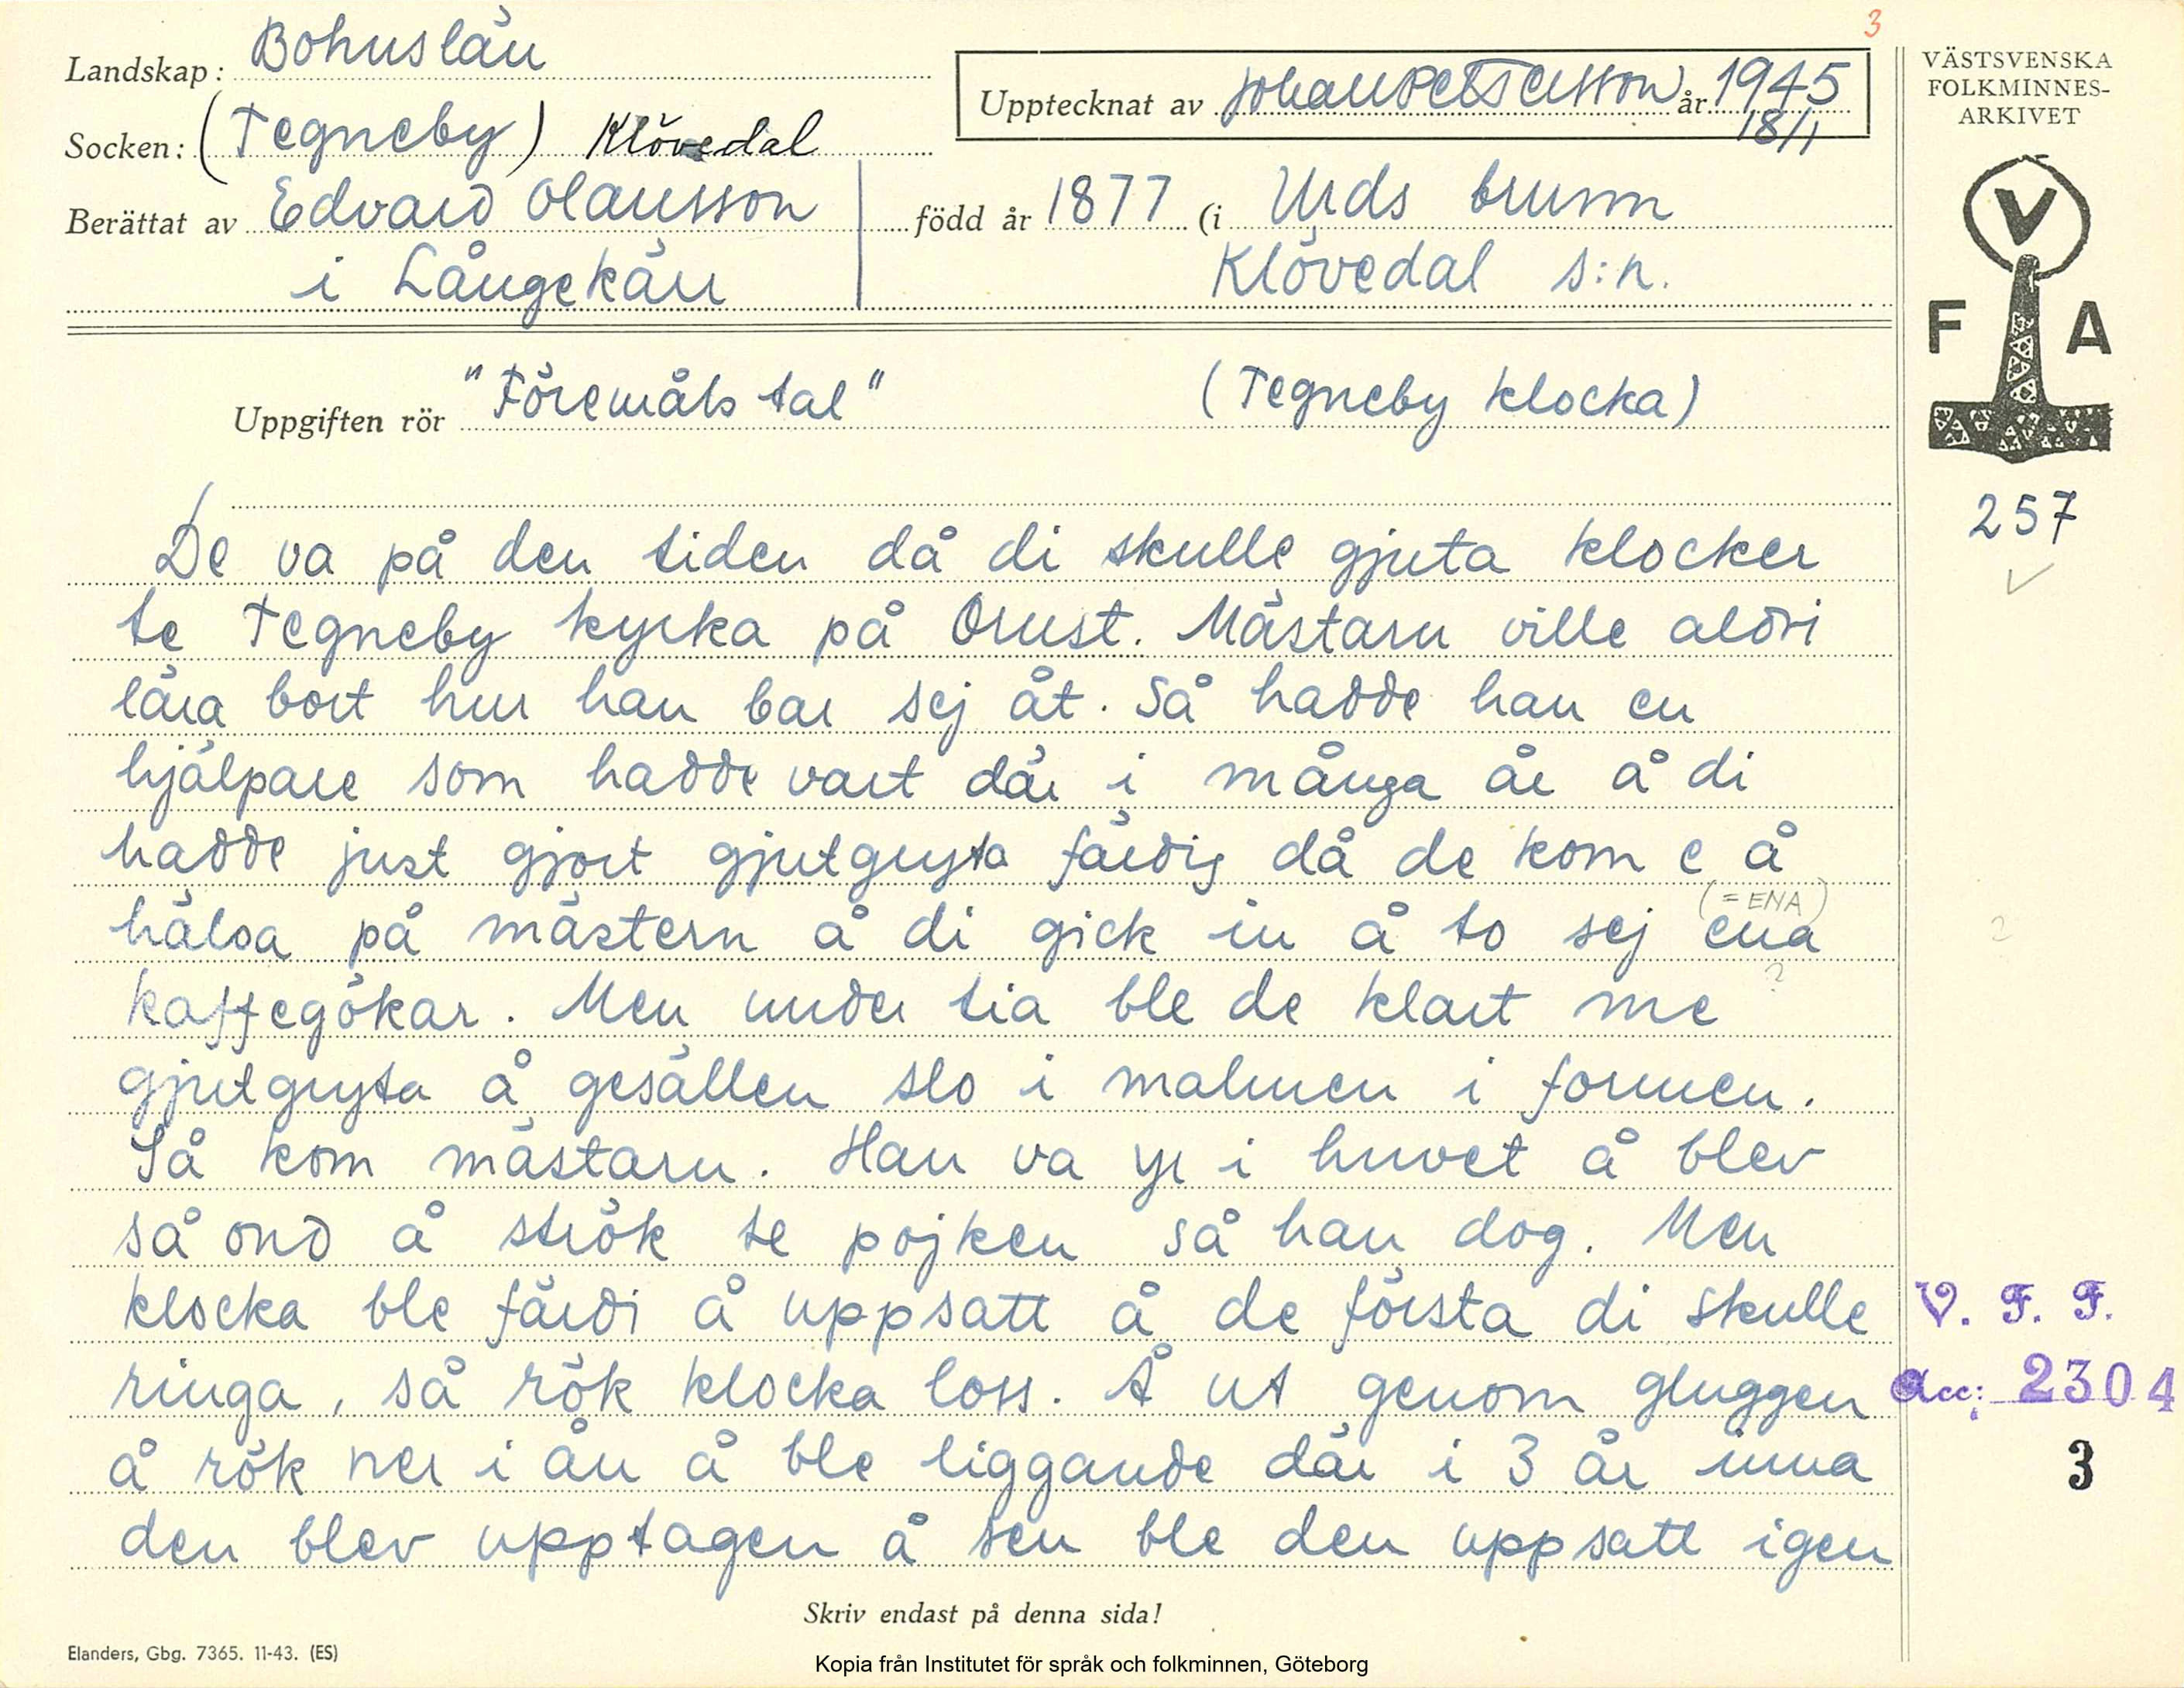 3
Landskap: Bohuslän
Socken: (Tegneby) Klövedal
Upptecknat av Johan Pettersson år 1945
18/1
Berättat av Edvard Olausson
i Långekärr
född år 1877 (i Urds brunn
Klövedal s:n.
VÄSTSVENSKA
FOLKMINNES-
ARKIVET
V
F A
Uppgiften rör "Föremåls tal" (Tegneby klocka)
257
De va på den tiden då di skulle gjuta klocker
te Tegneby kyrka på Orust. Mästarn ville aldri
lära bort hur han bar sej åt. Så hadde han en
hjälpare som hadde vart där i många år å di
hadde just gjort gjutgryta färdig då de kom e å
(= ENA)
hälsa på mästern å di gick in å to sej ena
?
kaffegökar. Men under tia ble de klart me
gjutgryta å gesällen slo i malmen i formen.
Så kom mästarn. Han va yr i huvet å blev
så ond å strök te pojken så han dog. Men
klocka ble färdi å uppsatt å de första di skulle
ringa, så rök klocka loss. Å ut genom gluggen
å rök ner i ån å ble liggande där i 3 år inna
den blev upptagen å sen ble den uppsatt igen
V. F. F.
Acc: 2304
3
Skriv endast på denna sida!
Elanders, Gbg. 7365. 11-43. (ES)
Kopia från Institutet för språk och folkminnen, Göteborg